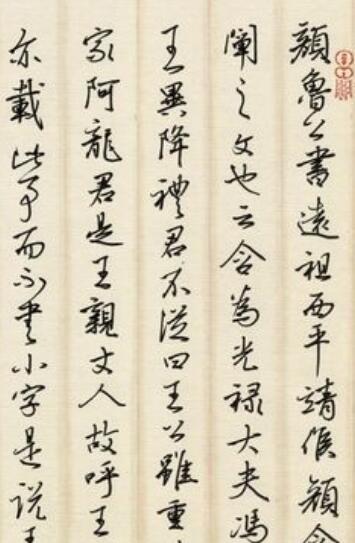 顏魯公書遠祖西平靖侯顏含
闡之文也云含為光祿大夫馮
王異降禮君不從曰王公雖重
家阿龍君是王親丈人故呼王
亦載此事而不書小字是說王